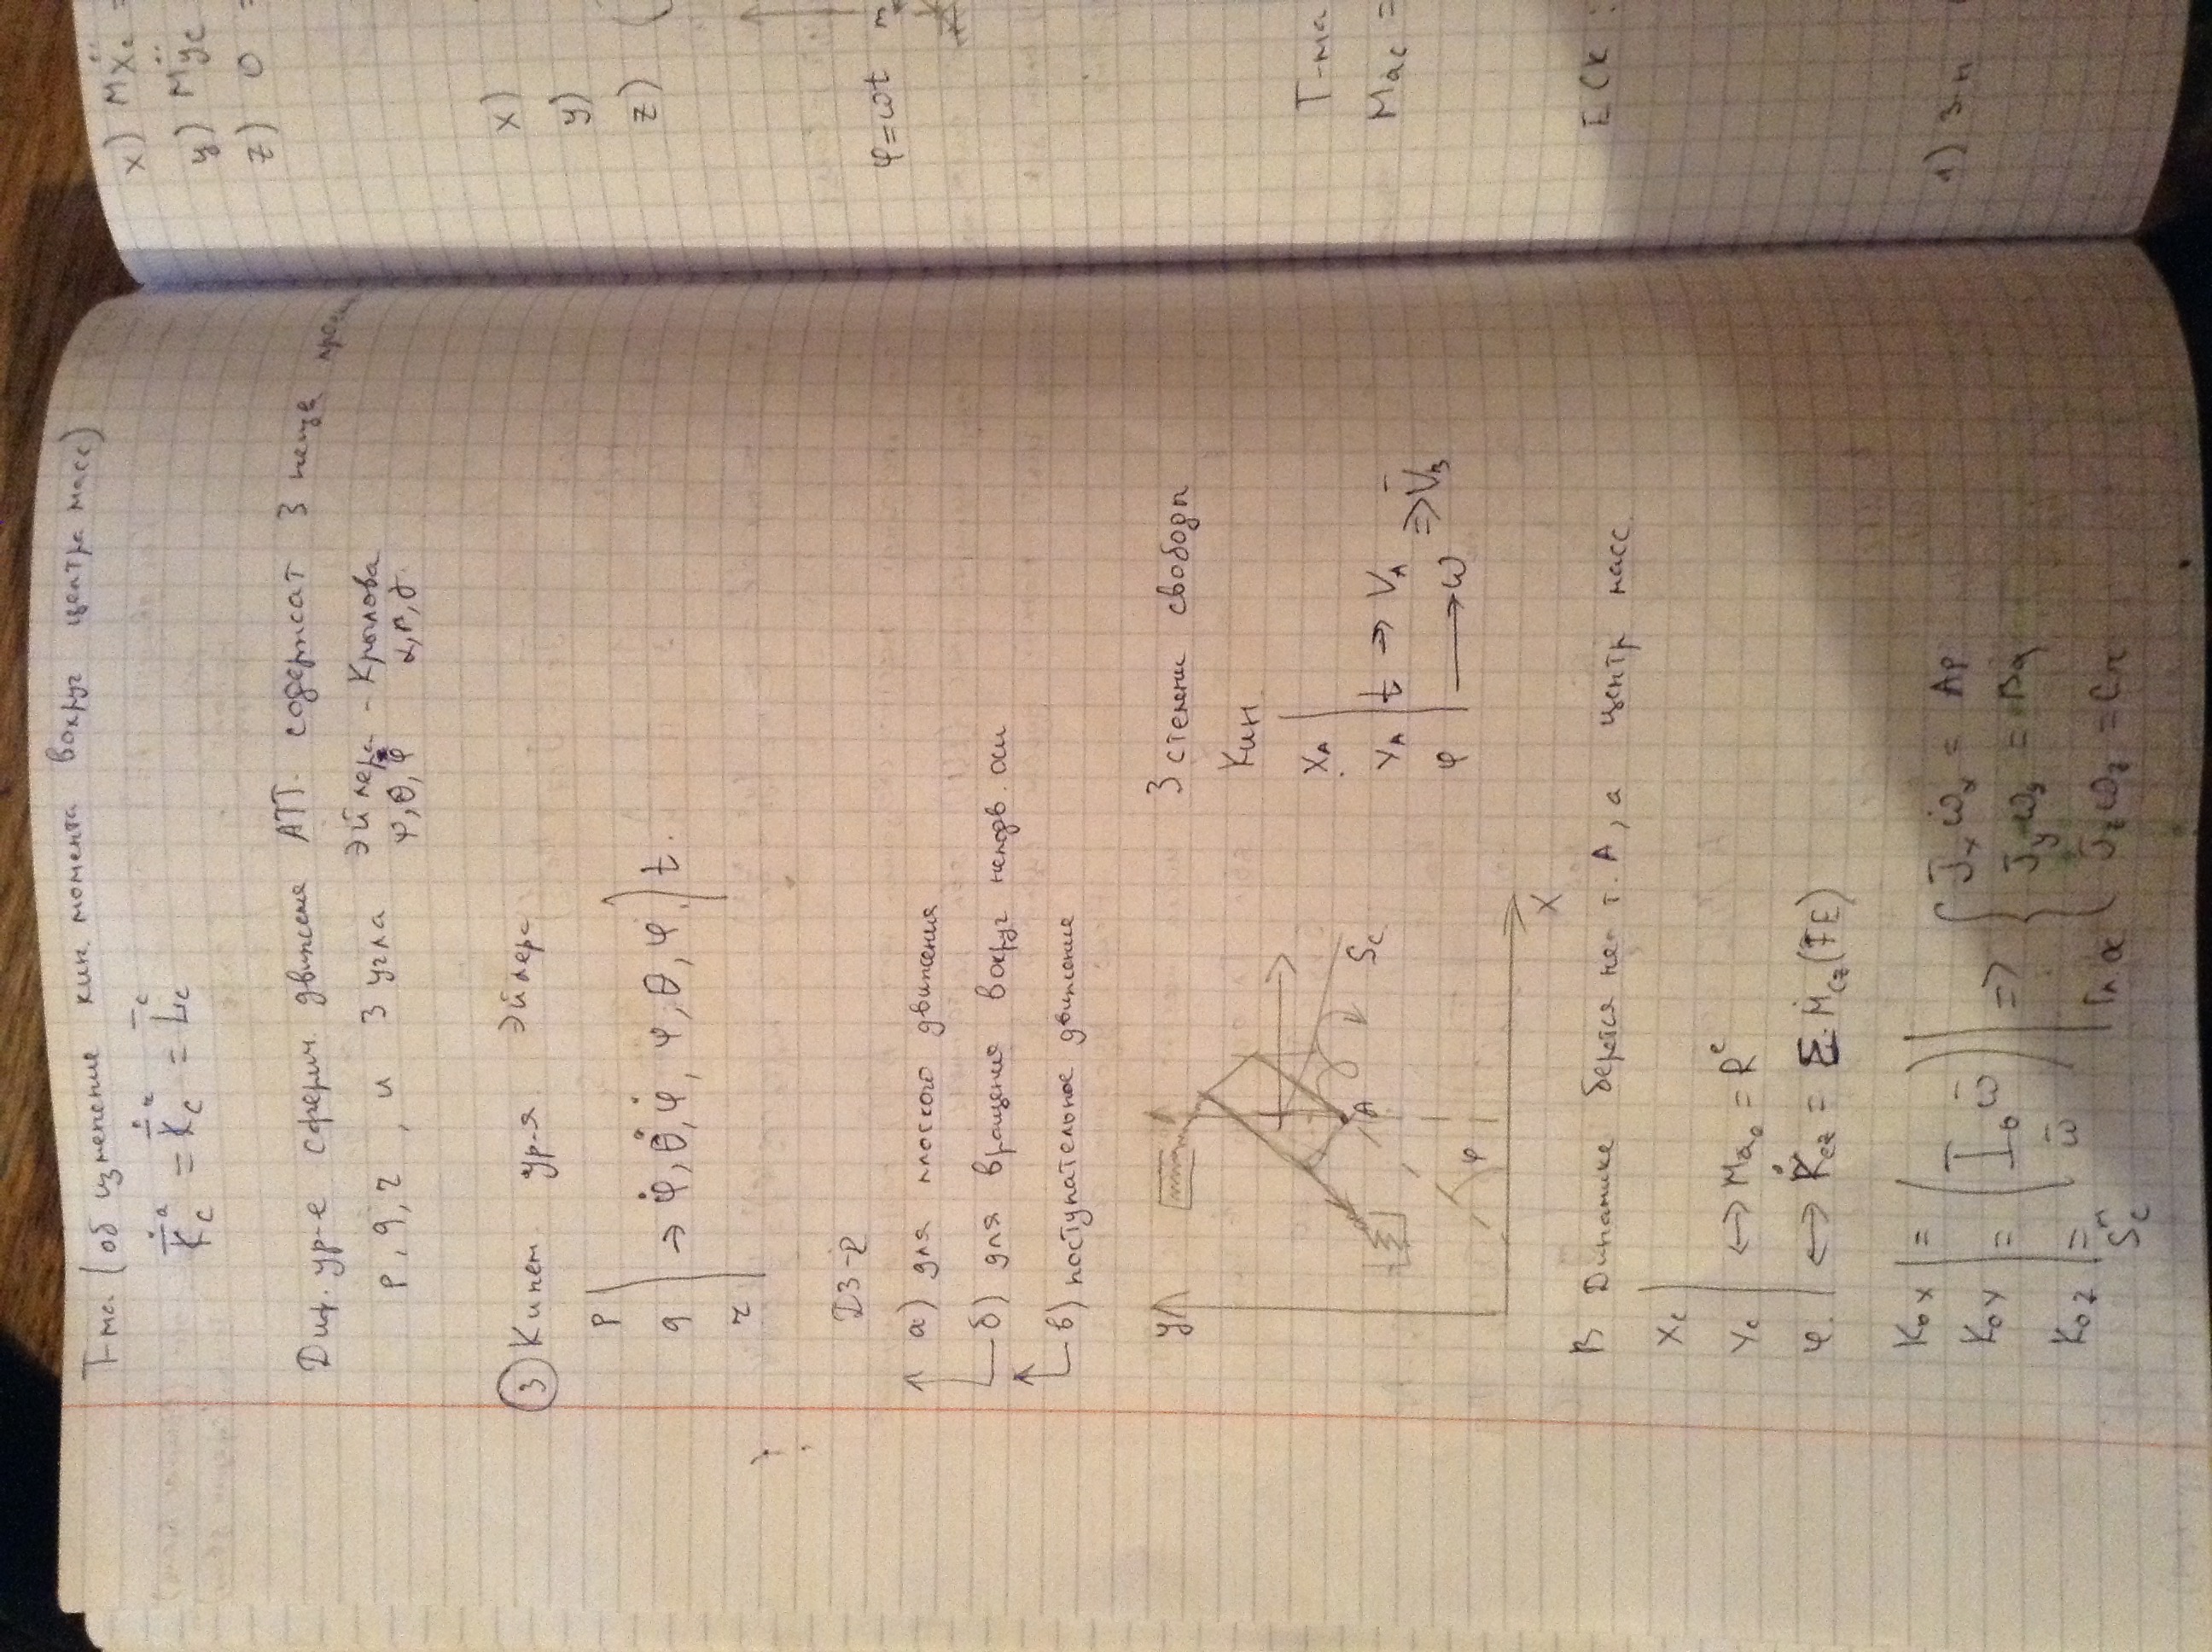 Т-ма. (об изменение кин. момента вокруг центра масс)
K̇̄ᵃ_C = K̇̄ʳ_C = L̄ᵉ_C
Диф. ур-е сферич. движения АТТ. содержат 3 неизв
p, q, r, и 3 угла Эйлера - Крылова
ψ, θ, φ α, β, γ.
③ Кинем ур-я Эйлера
p
q → ψ̇, θ̇, φ̇, ψ, θ, φ t.
r
ДЗ-2
а) для плоского движения
б) для вращения вокруг неподв. оси
в) поступательное движение
y
A
φ
S_C
X
3 степени свободы
Кин
X_A
Y_A t → V_A ⇒ V̄_B
φ → ω
В Динамике берется не т. A, а центр масс.
X_C
Y_C ↔ Ma_c = R^e
φ. ↔ K̇_cz = Σ M_cz(FE)
K_ox = J_x ω_x = Ap
K_oy = (I_o ω̄) ⇒ J_y ω_y = Bq
K_oz = ω̄ J_z ω_z = Cr
x) MẌ_c =
y) MŸ_c =
z) 0 =
x)
y)
z) (
φ=ωt m
Т-ма
Ma_c =
1)